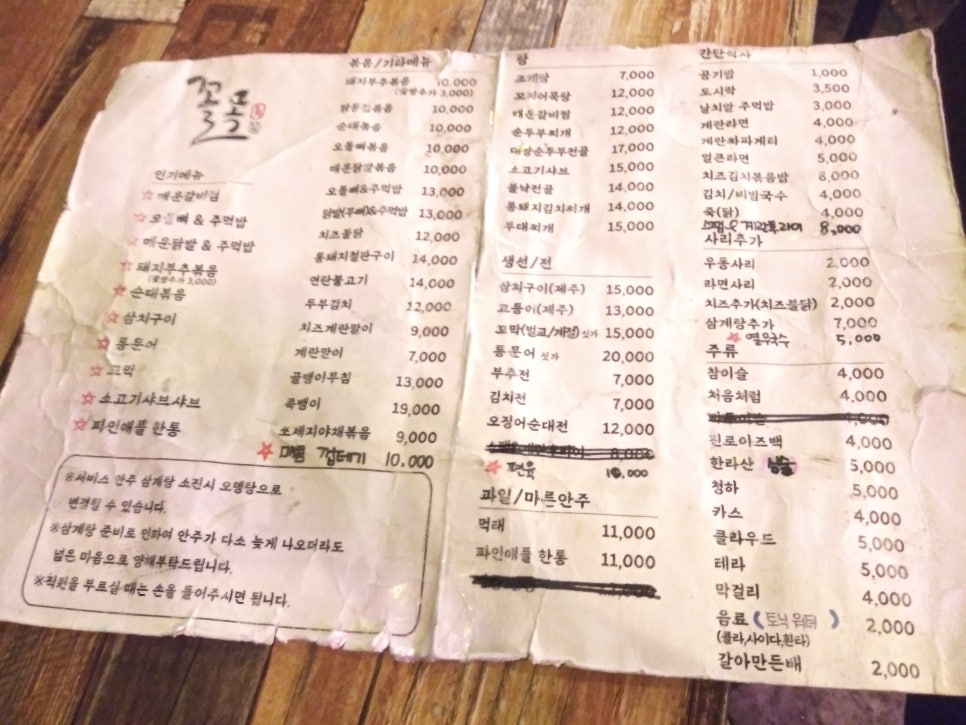 꼴뚝
인기메뉴
☆ 매운갈비찜
☆ 오돌뼈 & 주먹밥
☆ 매운닭발 & 주먹밥
☆ 돼지부추볶음
(꽃빵추가 3,000)
☆ 순대볶음
☆ 삼치구이
☆ 통문어
☆ 꼬막
☆ 소고기샤브샤브
☆ 파인애플 한통
※서비스 안주 삼계탕 소진시 오뎅탕으로
변경될 수 있습니다.
※삼계탕 준비로 인하여 안주가 다소 늦게 나오더라도
넓은 마음으로 양해부탁드립니다.
※직원을 부르실 때는 손을 들어주시면 됩니다.
볶음/기타메뉴
돼지부추볶음 10,000
(꽃빵추가 3,000)
닭똥집볶음 10,000
순대볶음 10,000
오돌뼈볶음 10,000
매운닭발볶음 10,000
오돌뼈&주먹밥 13,000
닭발(무뼈)&주먹밥 13,000
치즈불닭 12,000
통돼지철판구이 14,000
연탄불고기 14,000
두부김치 12,000
치즈계란말이 9,000
계란말이 7,000
골뱅이무침 13,000
족뱅이 19,000
쏘세지야채볶음 9,000
☆ 매콤 껍데기 10,000
탕
조개탕 7,000
꼬치어묵탕 12,000
매운갈비찜 12,000
순두부찌개 12,000
해상순두부전골 17,000
소고기샤브 15,000
불낙전골 14,000
통돼지김치찌개 14,000
부대찌개 15,000
생선/전
삼치구이(제주) 15,000
고등어(제주) 13,000
꼬막(벌교/계절) 싯가 15,000
통문어 싯가 20,000
부추전 7,000
김치전 7,000
오징어순대전 12,000
8,000
☆ 편육 10,000
과일/마른안주
먹태 11,000
파인애플 한통 11,000
간단식사
공기밥 1,000
도시락 3,500
날치알 주먹밥 3,000
계란라면 4,000
계란짜파게티 4,000
얼큰라면 5,000
치즈김치볶음밥 8,000
김치/비빔국수 4,000
죽(닭) 4,000
스팸&계란후라이 8,000
사리추가
우동사리 2,000
라면사리 2,000
치즈추가(치즈불닭) 2,000
삼계탕추가 7,000
☆ 열무국수 5,000
주류
참이슬 4,000
처음처럼 4,000
4,000
진로이즈백 4,000
한라산 5,000
청하 5,000
카스 4,000
클라우드 5,000
테라 5,000
막걸리 4,000
음료 (토닉워터) 2,000
(콜라,사이다,환타)
갈아만든배 2,000